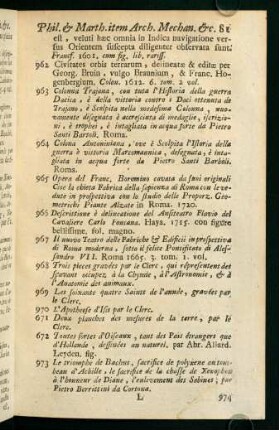 Phil. & Marth. item Arch. Mechan. &c. 81
est, veluti hæc omnia in Indica navigatione ver-
sus Orientem suscepta diligenter observata sunt.
Franf. 1601. cum fig. lib. rariss.
962 Civitates orbis terrarum, delineatæ & editæ per
Georg. Bruin, vulgo Braunium, & Franc. Ho-
genbergium. Colon. 1612. 6. tom. 2 vol.
963 Colonna Trajana, con tuta l'Historia della guerra
Dacica, è della vittoria contro i Daci ottenuta da
Trajano, è Scolpita nella medesima Colonna, nuo-
vamente disegnata è accresciuta di medaglie, iscrizio-
ni, è trophei, è intagliata in acqua forte da Pietro
Santi Bartoli. Roma.
964 Colona Antoniniana, ove è Scolpita l'Istoria della
guerra è vittoria Marcomannica, disegnata, è inta-
gliata in acqua forte da Pietro Santi Bartoli.
Roma.
965 Opera del Franc. Boromino cavata da suoi originali
Cioe la chieta Fabrica della sapienza di Roma con le ve-
dute in prospettiva con lo studio delle Proporz. Geo-
metriche Piante Alzate in Roma. 1720.
966 Descrittione è delineatione del Ansiteatro Flavio del
Cavaliere Carlo Fontana. Haya. 1715. con figure
bellissime, fol. magno.
967 Il nuovo Teatro delle Fabriche & Edificii in prospettiva
di Roma moderna, sotto il felice Pontificato di Ales-
sandro VII. Roma 1665. 3. tom. 1. vol.
968 Trois pieces gravées par le Clerc, qui représentent des
sçavans occupez à la Chymie, à l'astronomie, & à
l'Anatomie des animaux.
969 Les soixante quatre Saints de l'année, gravées par
le Clerc.
970 L'Apotheose d'Isis par le Clerc.
971 Deux planches des mesures de la terre, par le
Clerc.
972 Toutes sortes d'Oiseaux, tant des Païs étrangers que
d'Hollande, dessinées au naturel, par Abr. Allard.
Leyden. fig.
973 Le triomphe de Bachus, sacrifice de polyxene au tom-
beau d'Achille, le sacrifice de la chasse de Xenophon
à l'honneur de Diane, l'enlevement des Sabines; par
Pietro Berrittini da Cortona.
L 974